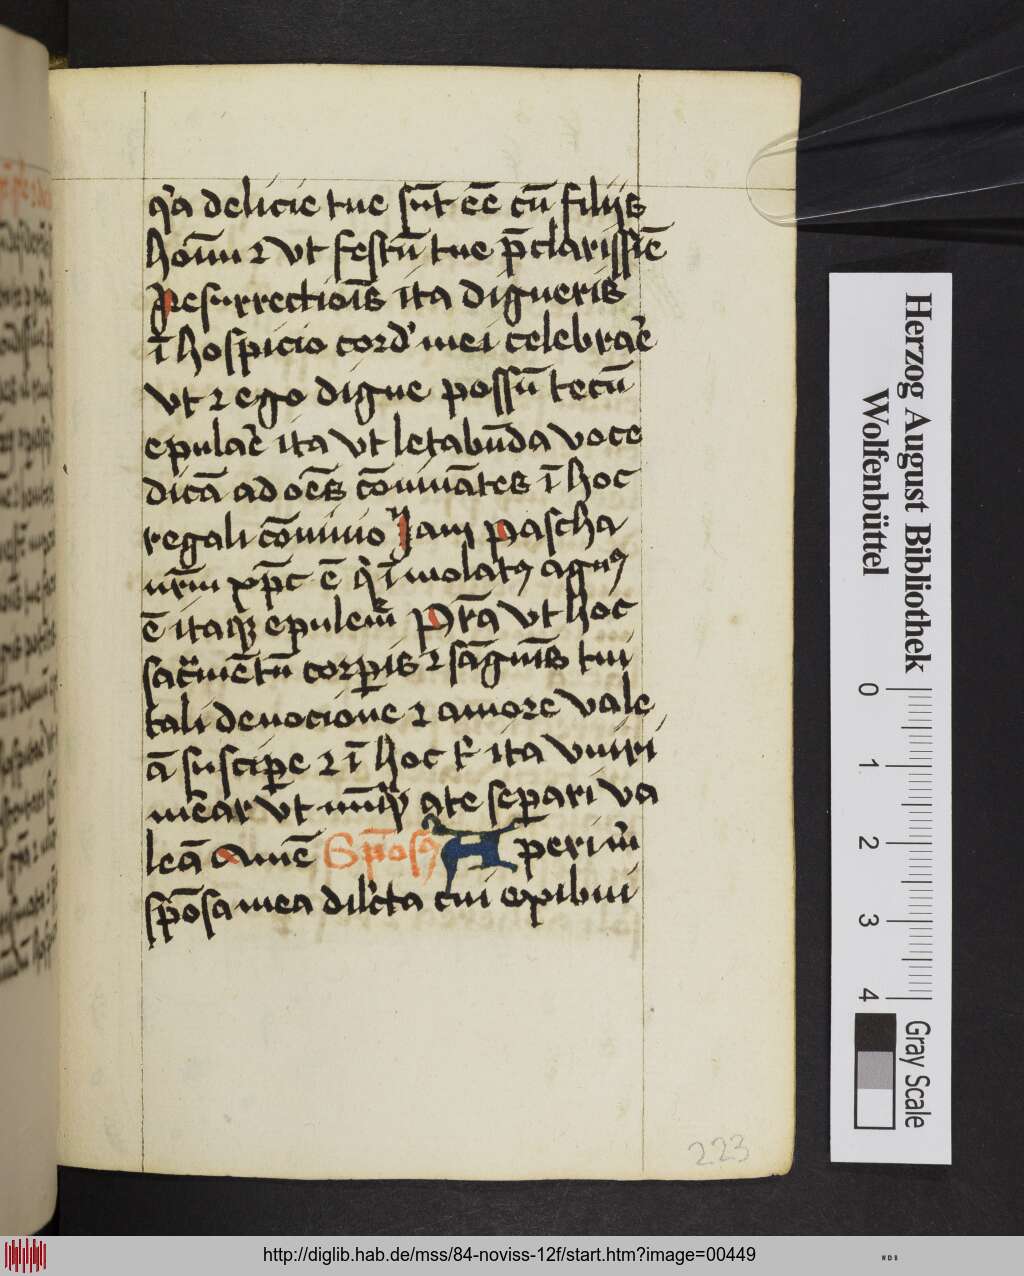 qͥa delicie tue sūt eē cū filijs
hoīnū ⁊ vt festū tue p̄clarissiē
Resurrectiōis ita digneris
ī hospicio cord' mei celebrar̄e
vt ⁊ ego digne possū tecū
epular̄e ita vt letabūda voce
dicā ad oēs cōuiuātes ī hoc
regali cōuiuio Jam Pascha
nr̄m xp̄c ē qͥ īmolatꝰ agnꝰ
ē itaqꝫ epulem̄ Pr̄a vt hoc
sacͣmētū corꝑis ⁊ sāguīs tui
tali deuocione ⁊ amore vale
ā susciꝑe ⁊ ī hoc ita vniri
mēar vt nūq̄ȝ a te seꝑari va
leā Amē Spōsꝰ Aperi m̄
spōsa mea dilc̄ta cui exibui
223
Herzog August Bibliothek
Wolfenbüttel
0 1 2 3 4
Gray Scale
http://diglib.hab.de/mss/84-noviss-12f/start.htm?image=00449